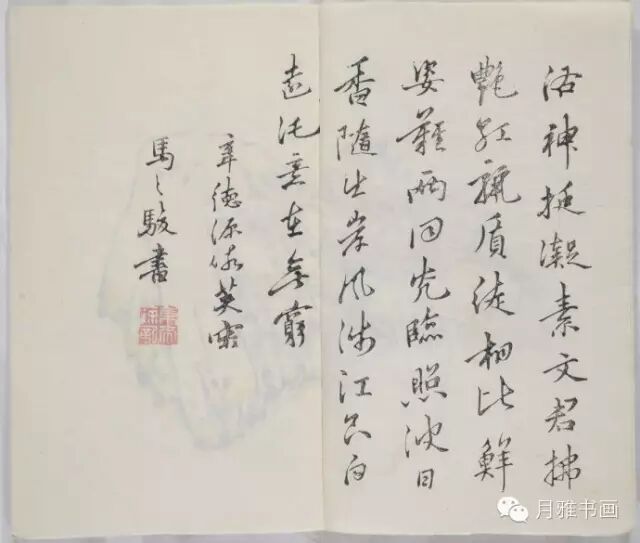 洛神挺凝素文君拂
艷紅麗質徒相比鮮
姿難兩同光臨照波日
香隨出岸風涉江良自
遠託意在無窮
辛德源詠芙蓉
馬之駿書
月雅书画